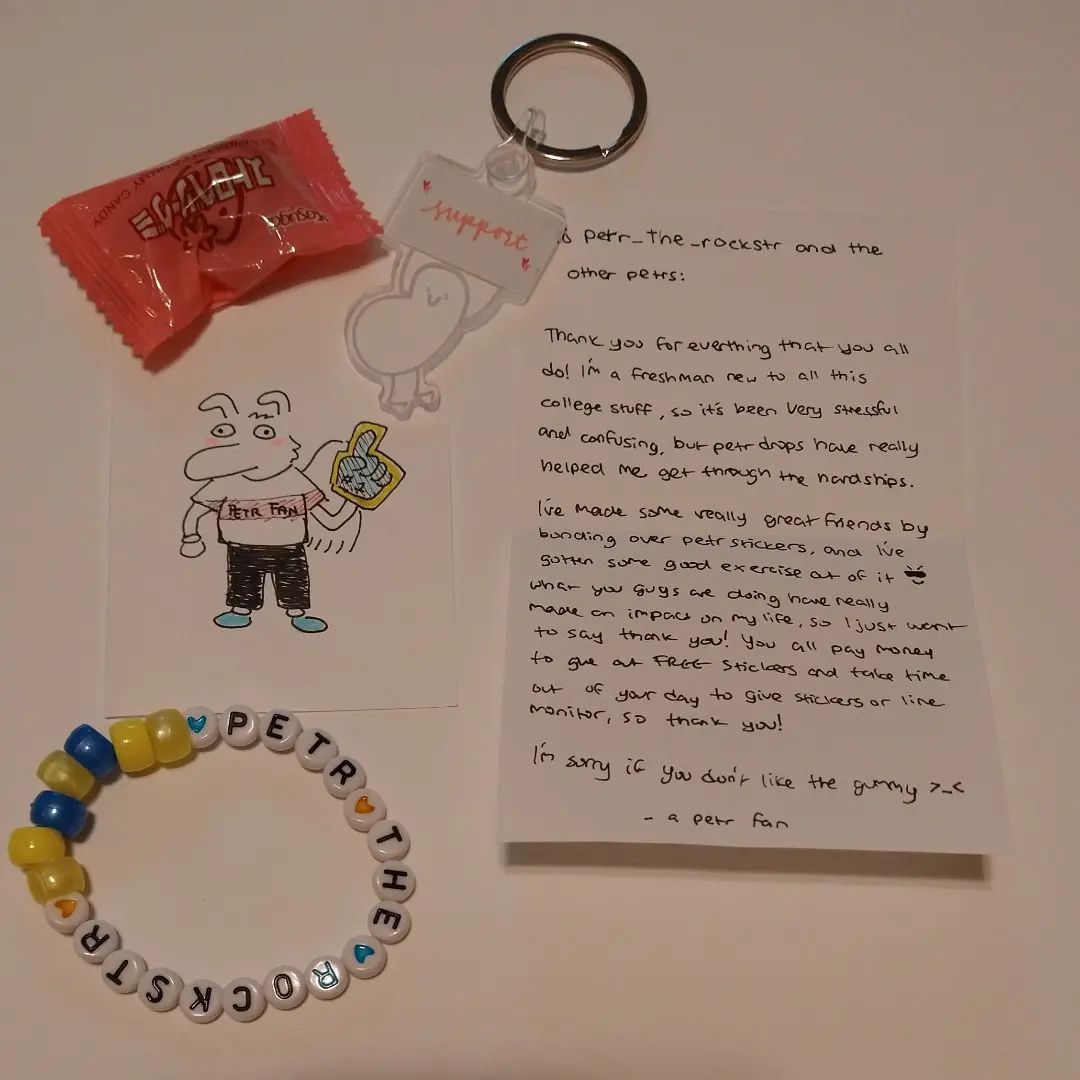 STRAWBERRY GUMMY CANDY
Kasugai
support
petr_the_rockstr and the
other petrs:
Thank you for everthing that you all
do! I'm a freshman new to all this
college stuff, so it's been very stressful
and confusing, but petr drops have really
helped me get through the hardships.
I've made some really great friends by
bonding over petr stickers, and I've
gotten some good exercise out of it
what you guys are doing have really
made an impact on my life, so I just want
to say thank you! You all pay money
to give out FREE stickers and take time
out of your day to give stickers or line
monitor, so thank you!
I'm sorry if you don't like the gummy >_<
- a petr fan
PETR FAN
PETR THE ROCKSTR